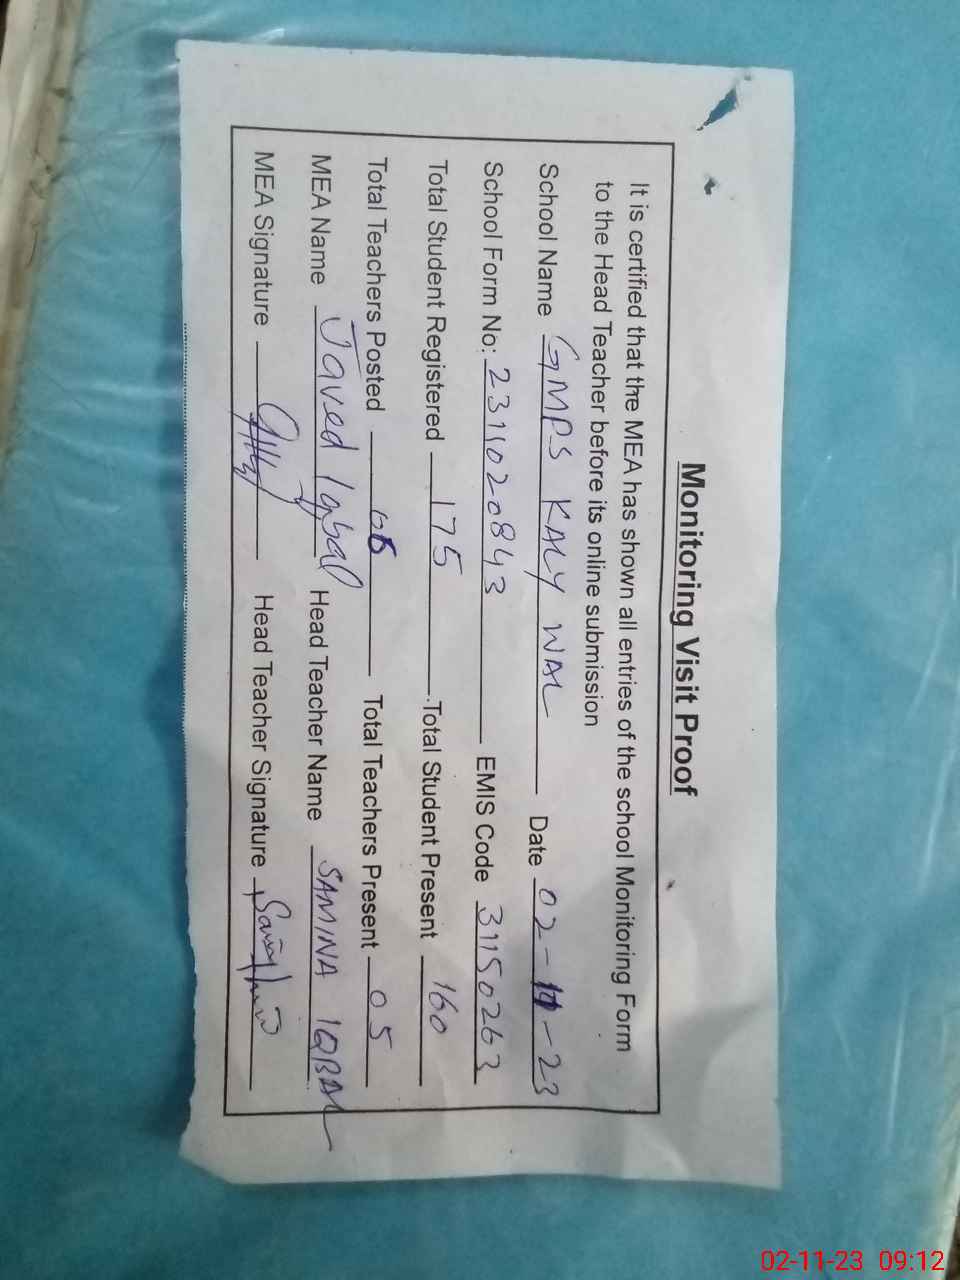 Monitoring Visit Proof
It is certified that the MEA has shown all entries of the school Monitoring Form
to the Head Teacher before its online submission
School Name GMPS KALY WAL Date 02-11-23
School Form No: 2311020843 EMIS Code 31150263
Total Student Registered 175 Total Student Present 160
Total Teachers Posted Total Teachers Present 05
MEA Name Javed Iqbal Head Teacher Name SAMINA IQBAL
MEA Signature Head Teacher Signature
02-11-23 09:12